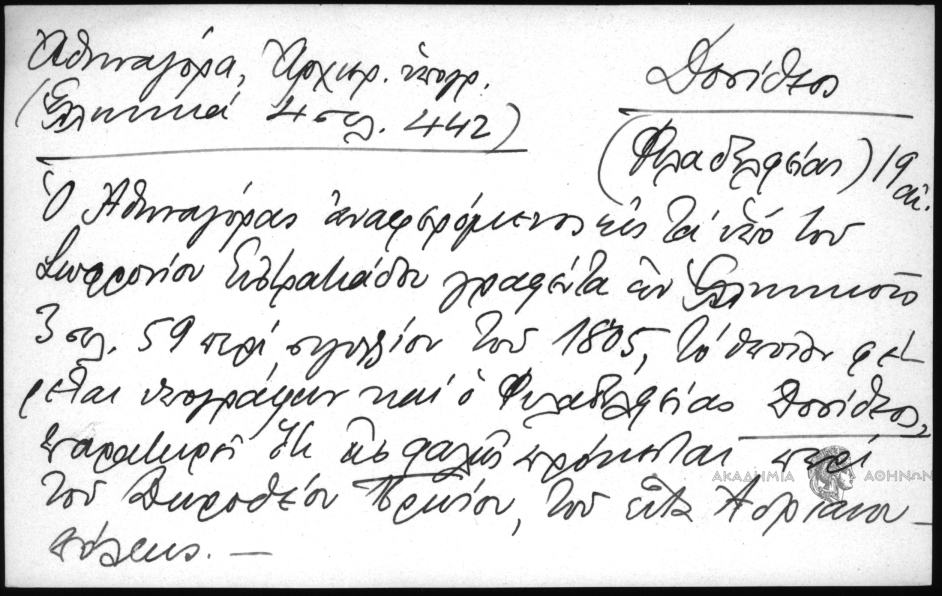 Ἀθηναγόρα, Ἀρχιερ. ὑπογρ.
(Ἑλληνικά 4 σελ. 442)
Δοσίθεος
(Φιλαδελφείας) 19 αἰ.
Ὁ Ἀθηναγόρας ἀναφερόμενος εἰς τά ὑπό τοῦ
Σωφρονίου Εὐστρατιάδου γραφέντα ἐν Ἑλληνικοῖς
3 σελ. 59 περί σιγιλλίου τοῦ 1805, τό ὁποῖον φέ-
ρεται ὑπογράψων καί ὁ Φιλαδελφείας Δοσίθεος,
παρατηρεῖ ὅτι πρόκειται περί
τοῦ Δωροθέου Πρωίου, τοῦ εἶτα Ἀδριανου-
πόλεως. —
ΑΚΑΔΗΜΙΑ ΑΘΗΝΩΝ